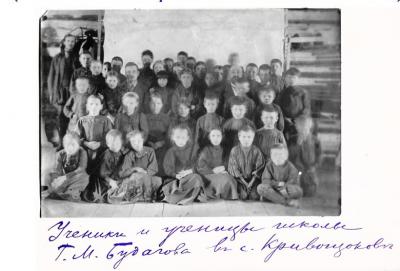 Ученики и ученицы школы
Г. М. Будагова в с. Кривощоково